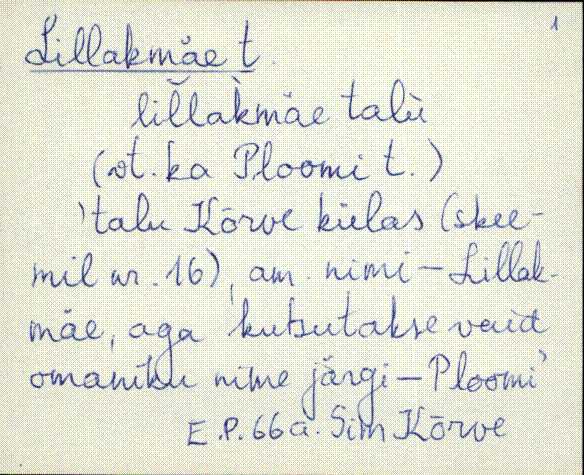 1
Lillakmäe t.
lil̆làkmäe talù
(vt. ka Ploomi t.)
'talu Kõrve külas (skee-
mil nr. 16), am. nimi – Lillak-
mäe, aga kutsutakse vaid
omaniku nime järgi – Ploomi'
E.P. 66 a. Sim Kõrve